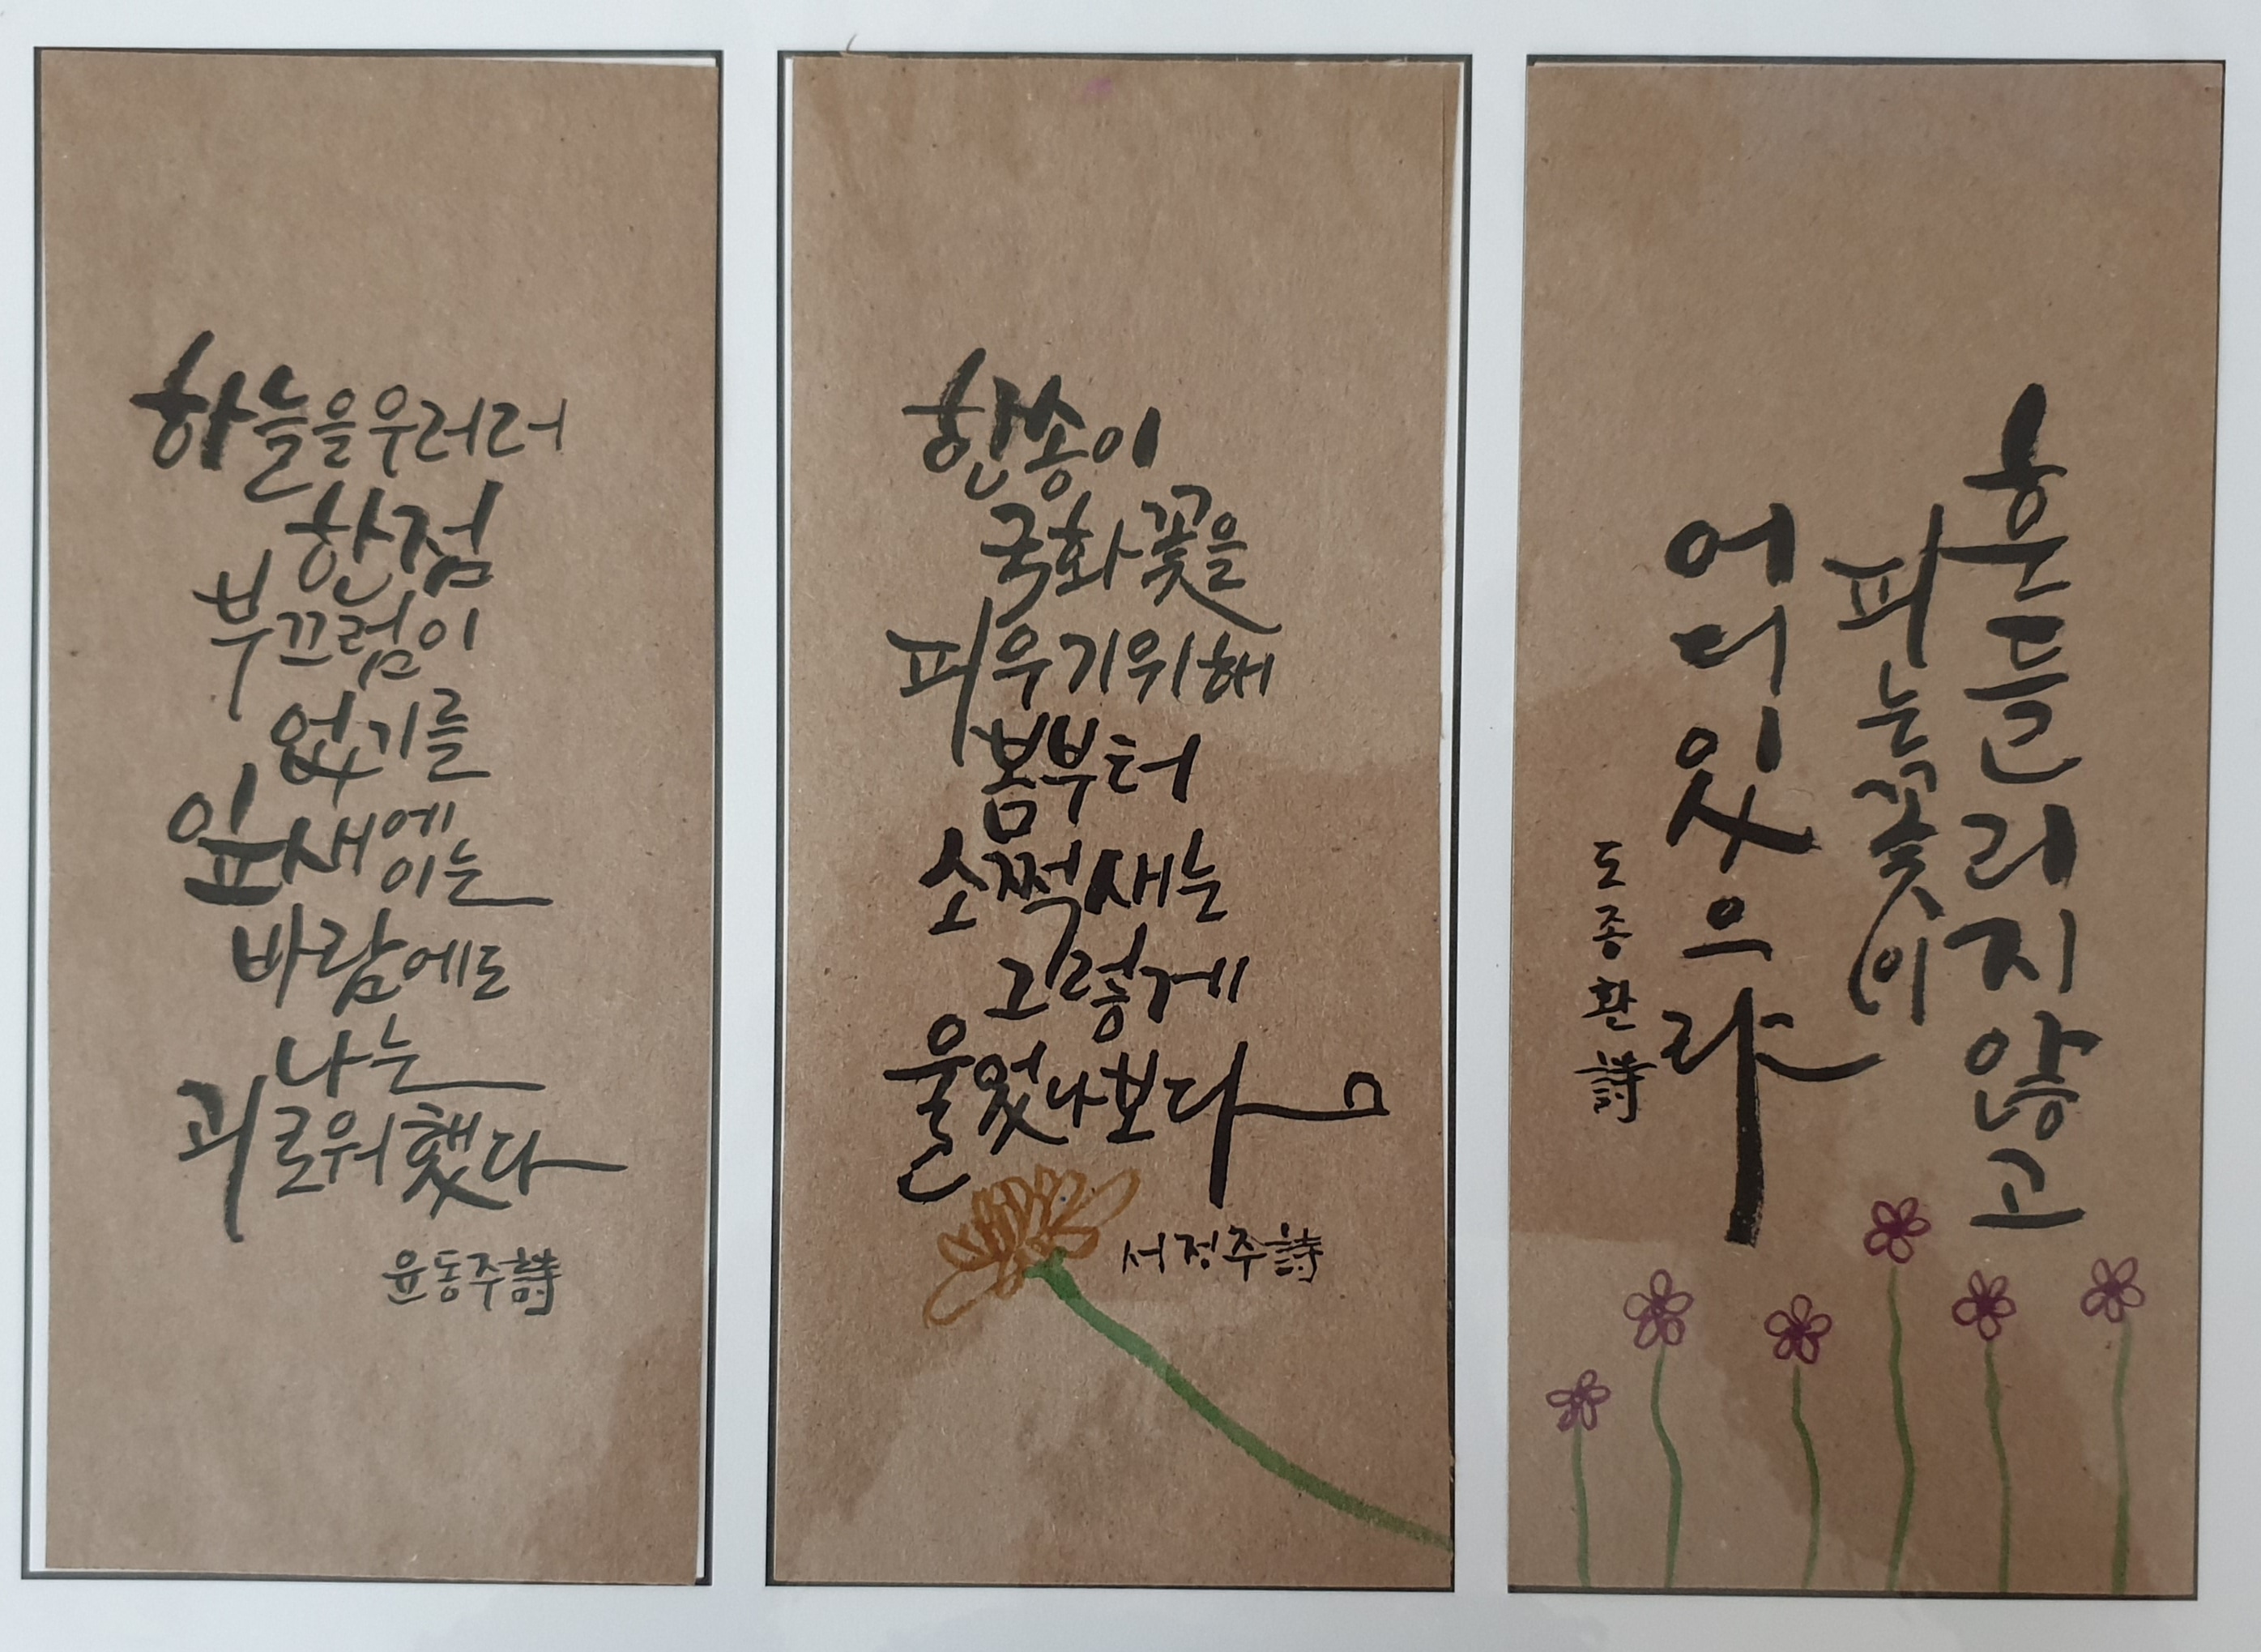 하늘을 우러러
한점
부끄럼이
없기를
잎새에
이는
바람에도
나는
괴로워했다
윤동주 詩
한송이
국화꽃을
피우기위해
봄부터
소쩍새는
그렇게
울었나보다
서정주 詩
흔들리지 않고
피는 꽃이
어디 있으랴
도종환 詩